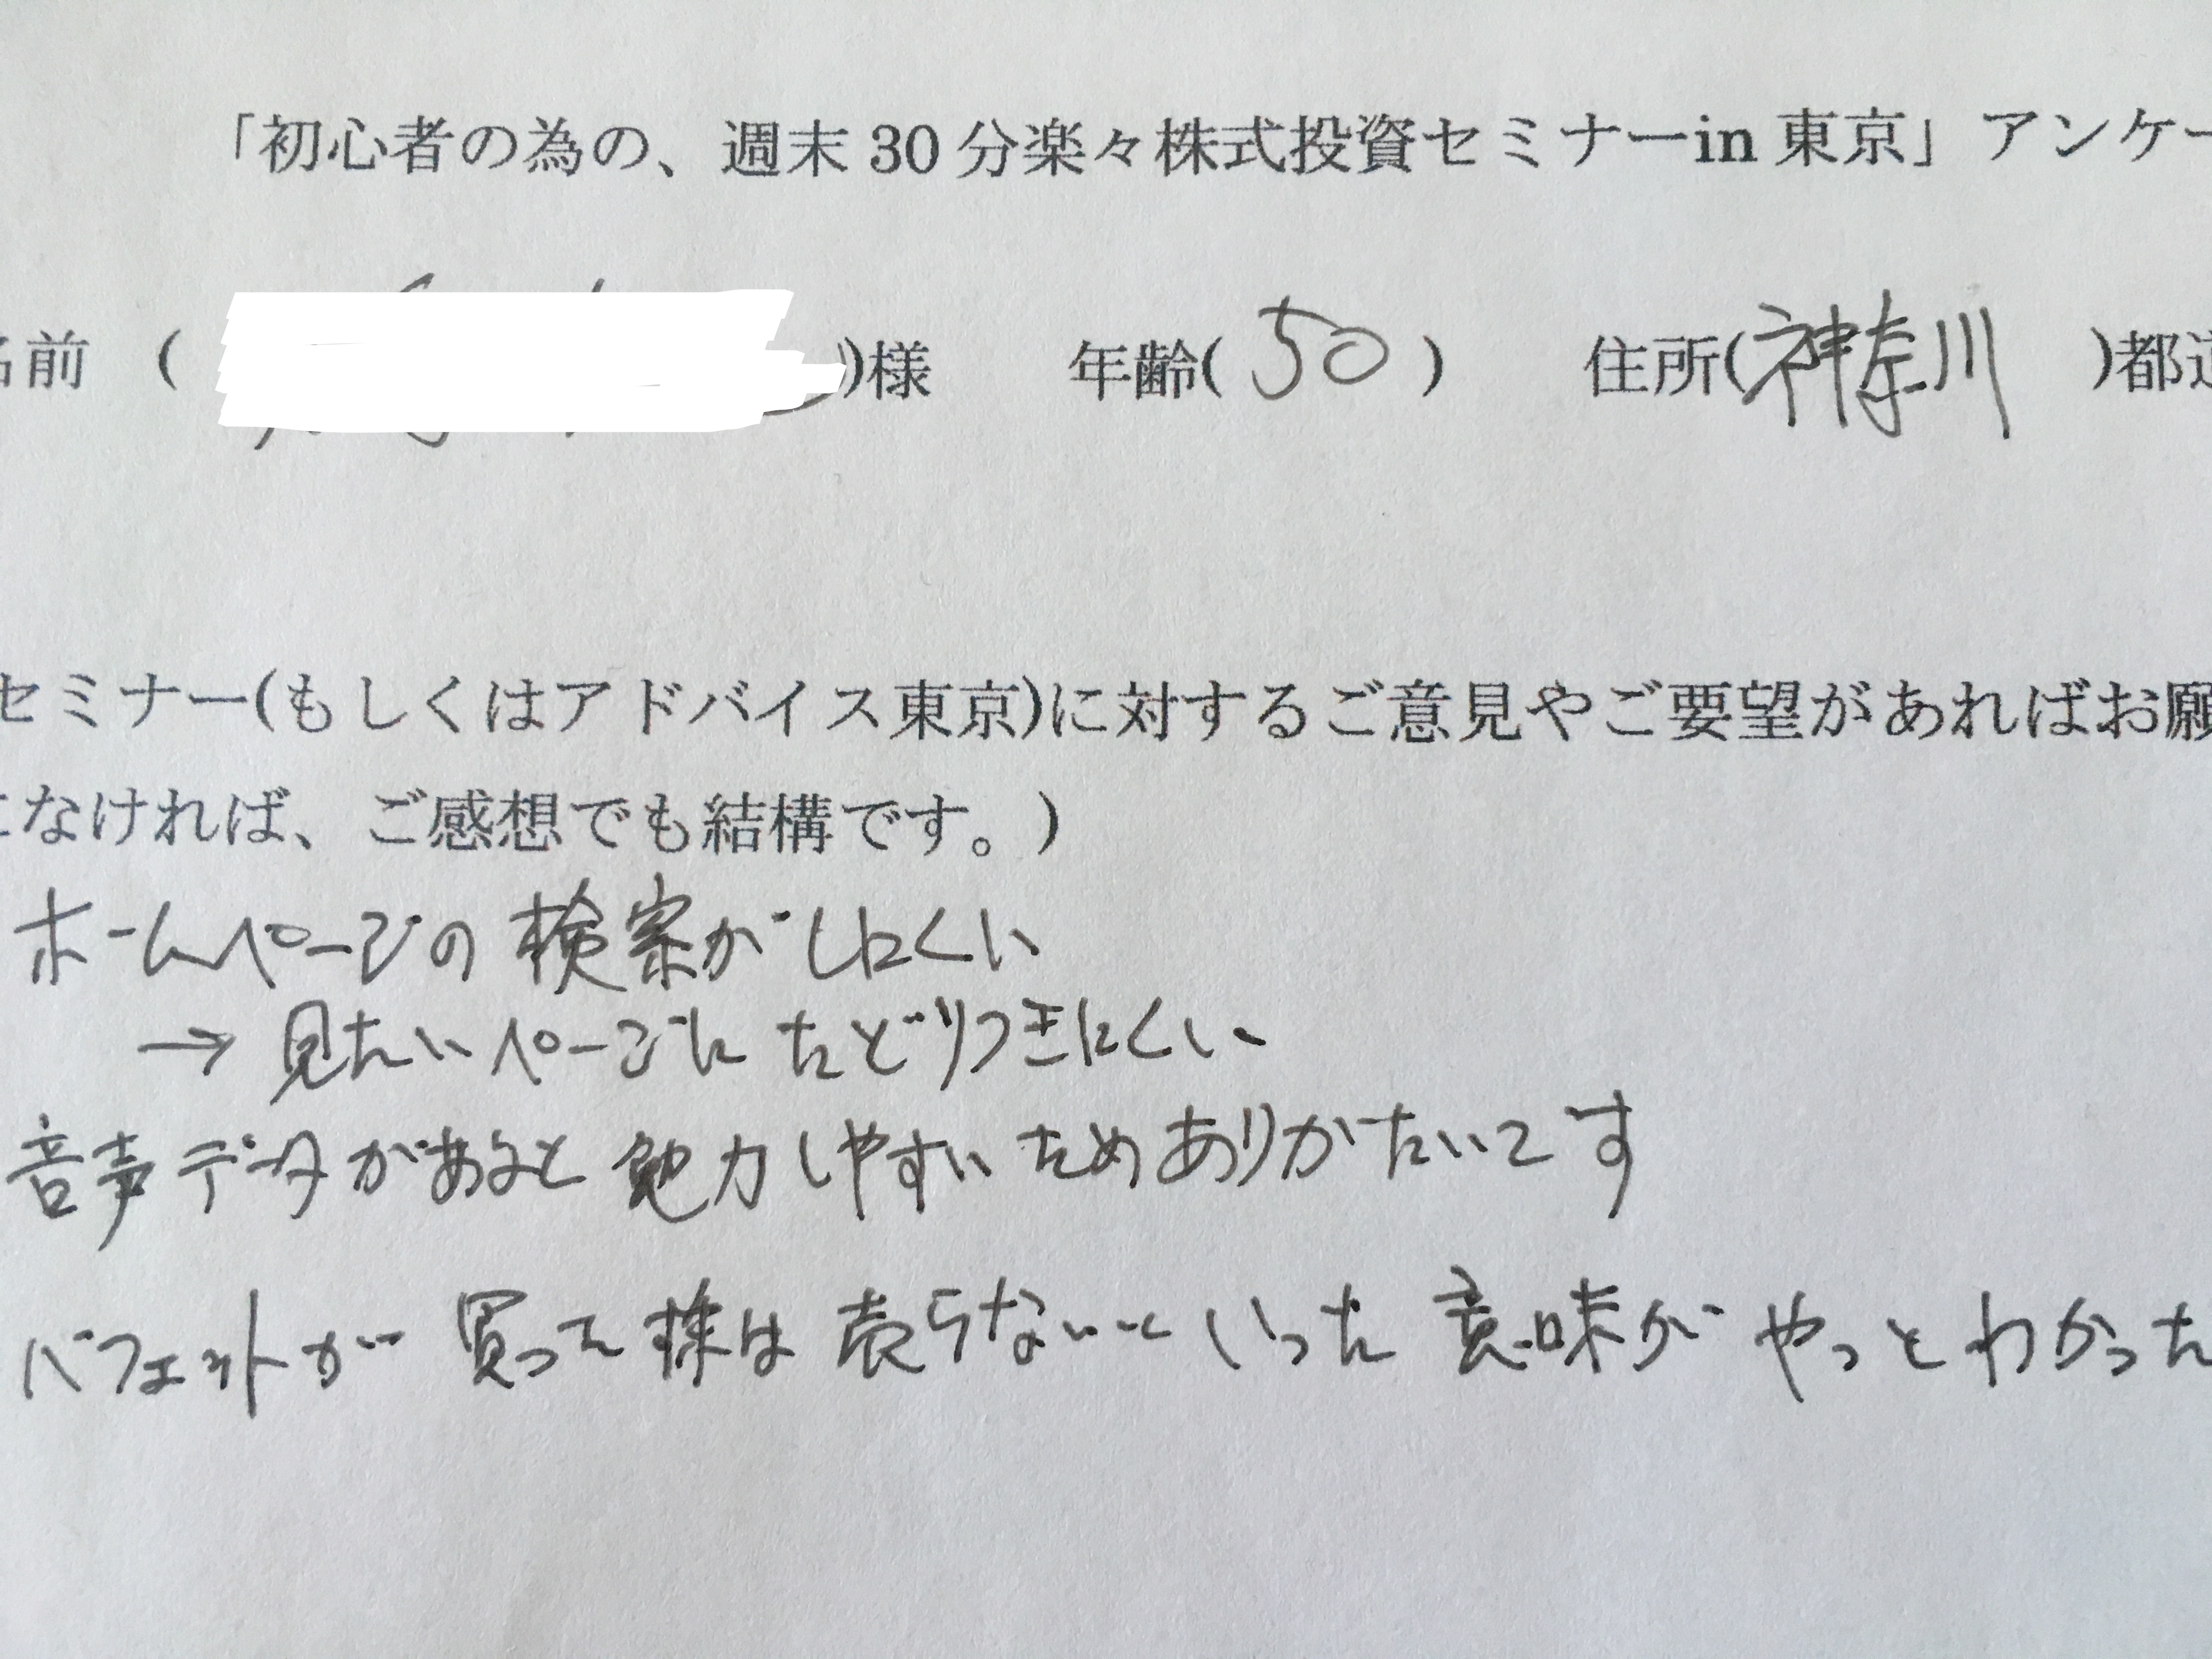 「初心者の為の、週末30分楽々株式投資セミナーin東京」アンケー
名前 ( )様 年齢(50) 住所(神奈川 )都道
セミナー(もしくはアドバイス東京)に対するご意見やご要望があればお願
になければ、ご感想でも結構です。)
ホームページの検索がしにくい
→ 見たいページにたどりつきにくい
音声データがあると勉力しやすいためありがたいです
バフェットが買った株は売らないといった意味がやっとわかった